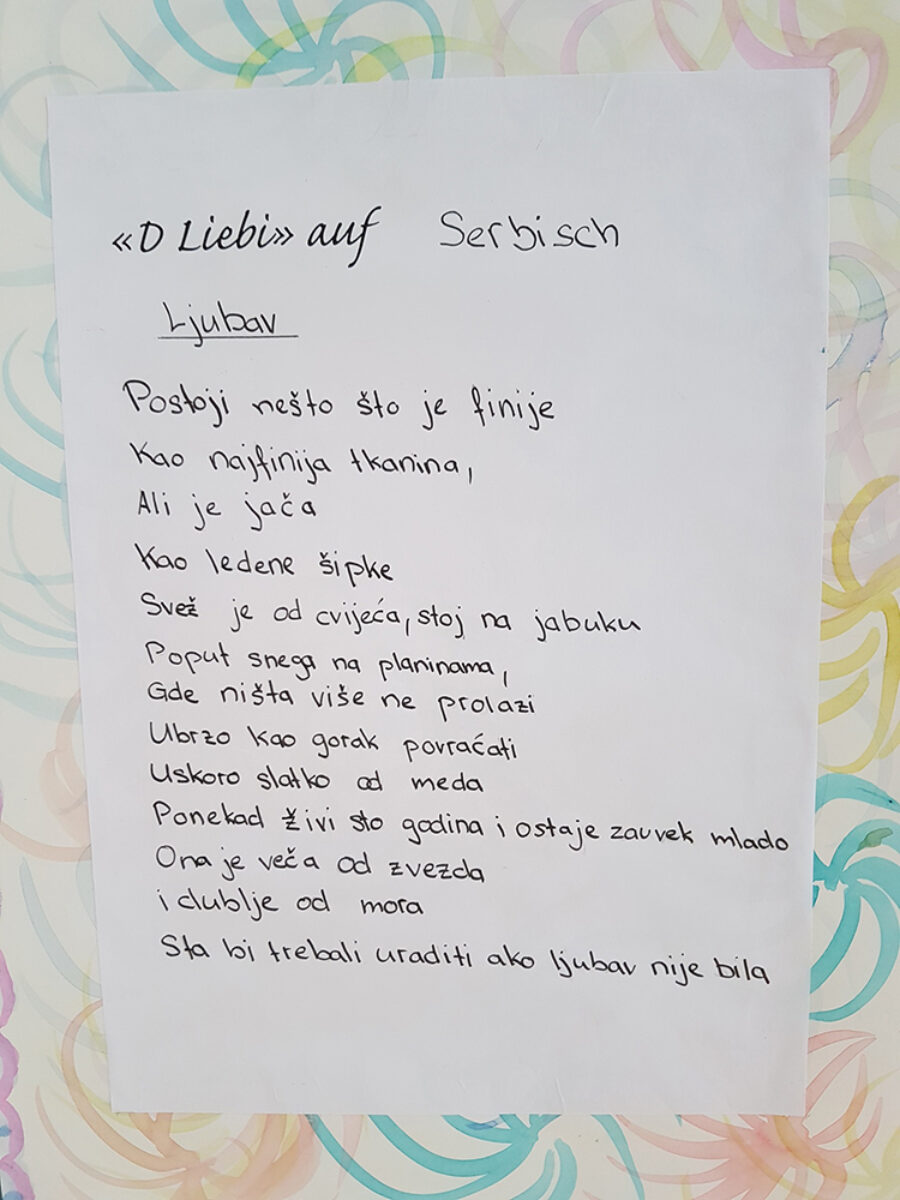 «D Liebi» auf Serbisch
Ljubav
Postoji nešto što je finije
Kao najfinija tkanina,
Ali je jača
Kao ledene šipke
Svež je od cvijeća, stoj na jabuku
Poput snega na planinama,
Gde ništa više ne prolazi
Ubrzo kao gorak povraćati
Uskoro slatko od meda
Ponekad živi sto godina i ostaje zauvek mlado
Ona je veča od zvezda
i dublje od mora
Sta bi trebali uraditi ako ljubav nije bila